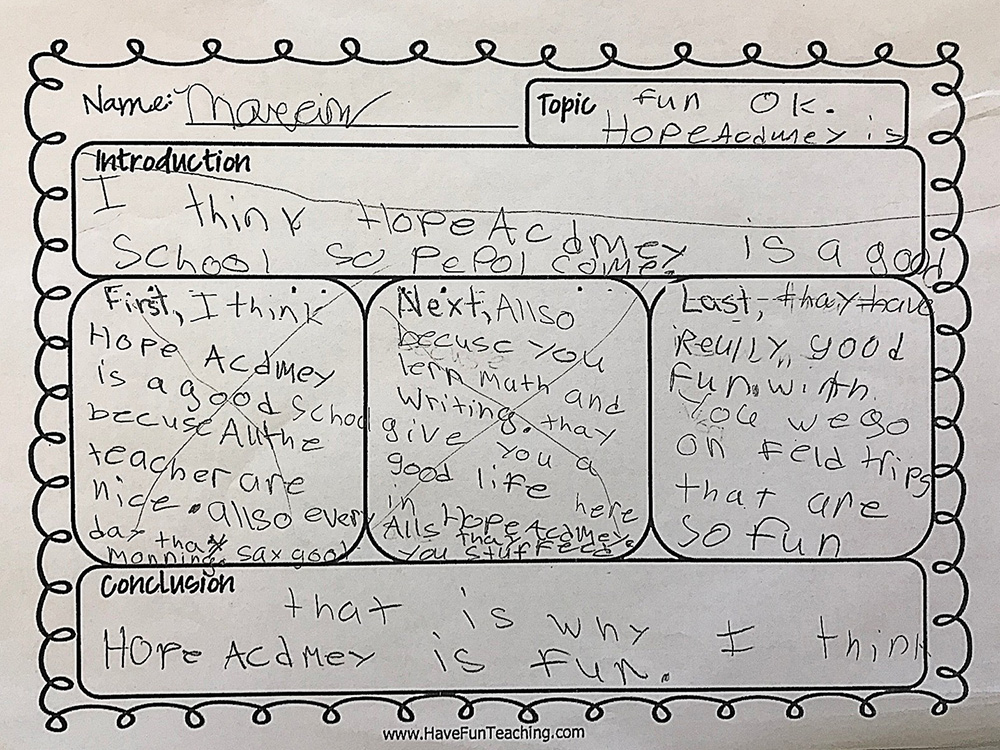 Name:
Topic fun OK.
HOPE Acdmey is
Introduction
I think HOPE Acdmey is a good
School so pepol come.
First, I think
Hope Acdmey
is a good School
becuse All the
teacher are
nice. allso every
day thay
monning. say good
Next, Allso
becuse you
lern math and
Writing. thay
give you a
good life here
in HOPE Acdmey.
Alls thay
you stuff
Last, thay have
Reully good
fun with
you we go
on feld trips
that are
so fun
Conclusion
that is why I think
HOPE Acdmey is fun.
www.HaveFunTeaching.com